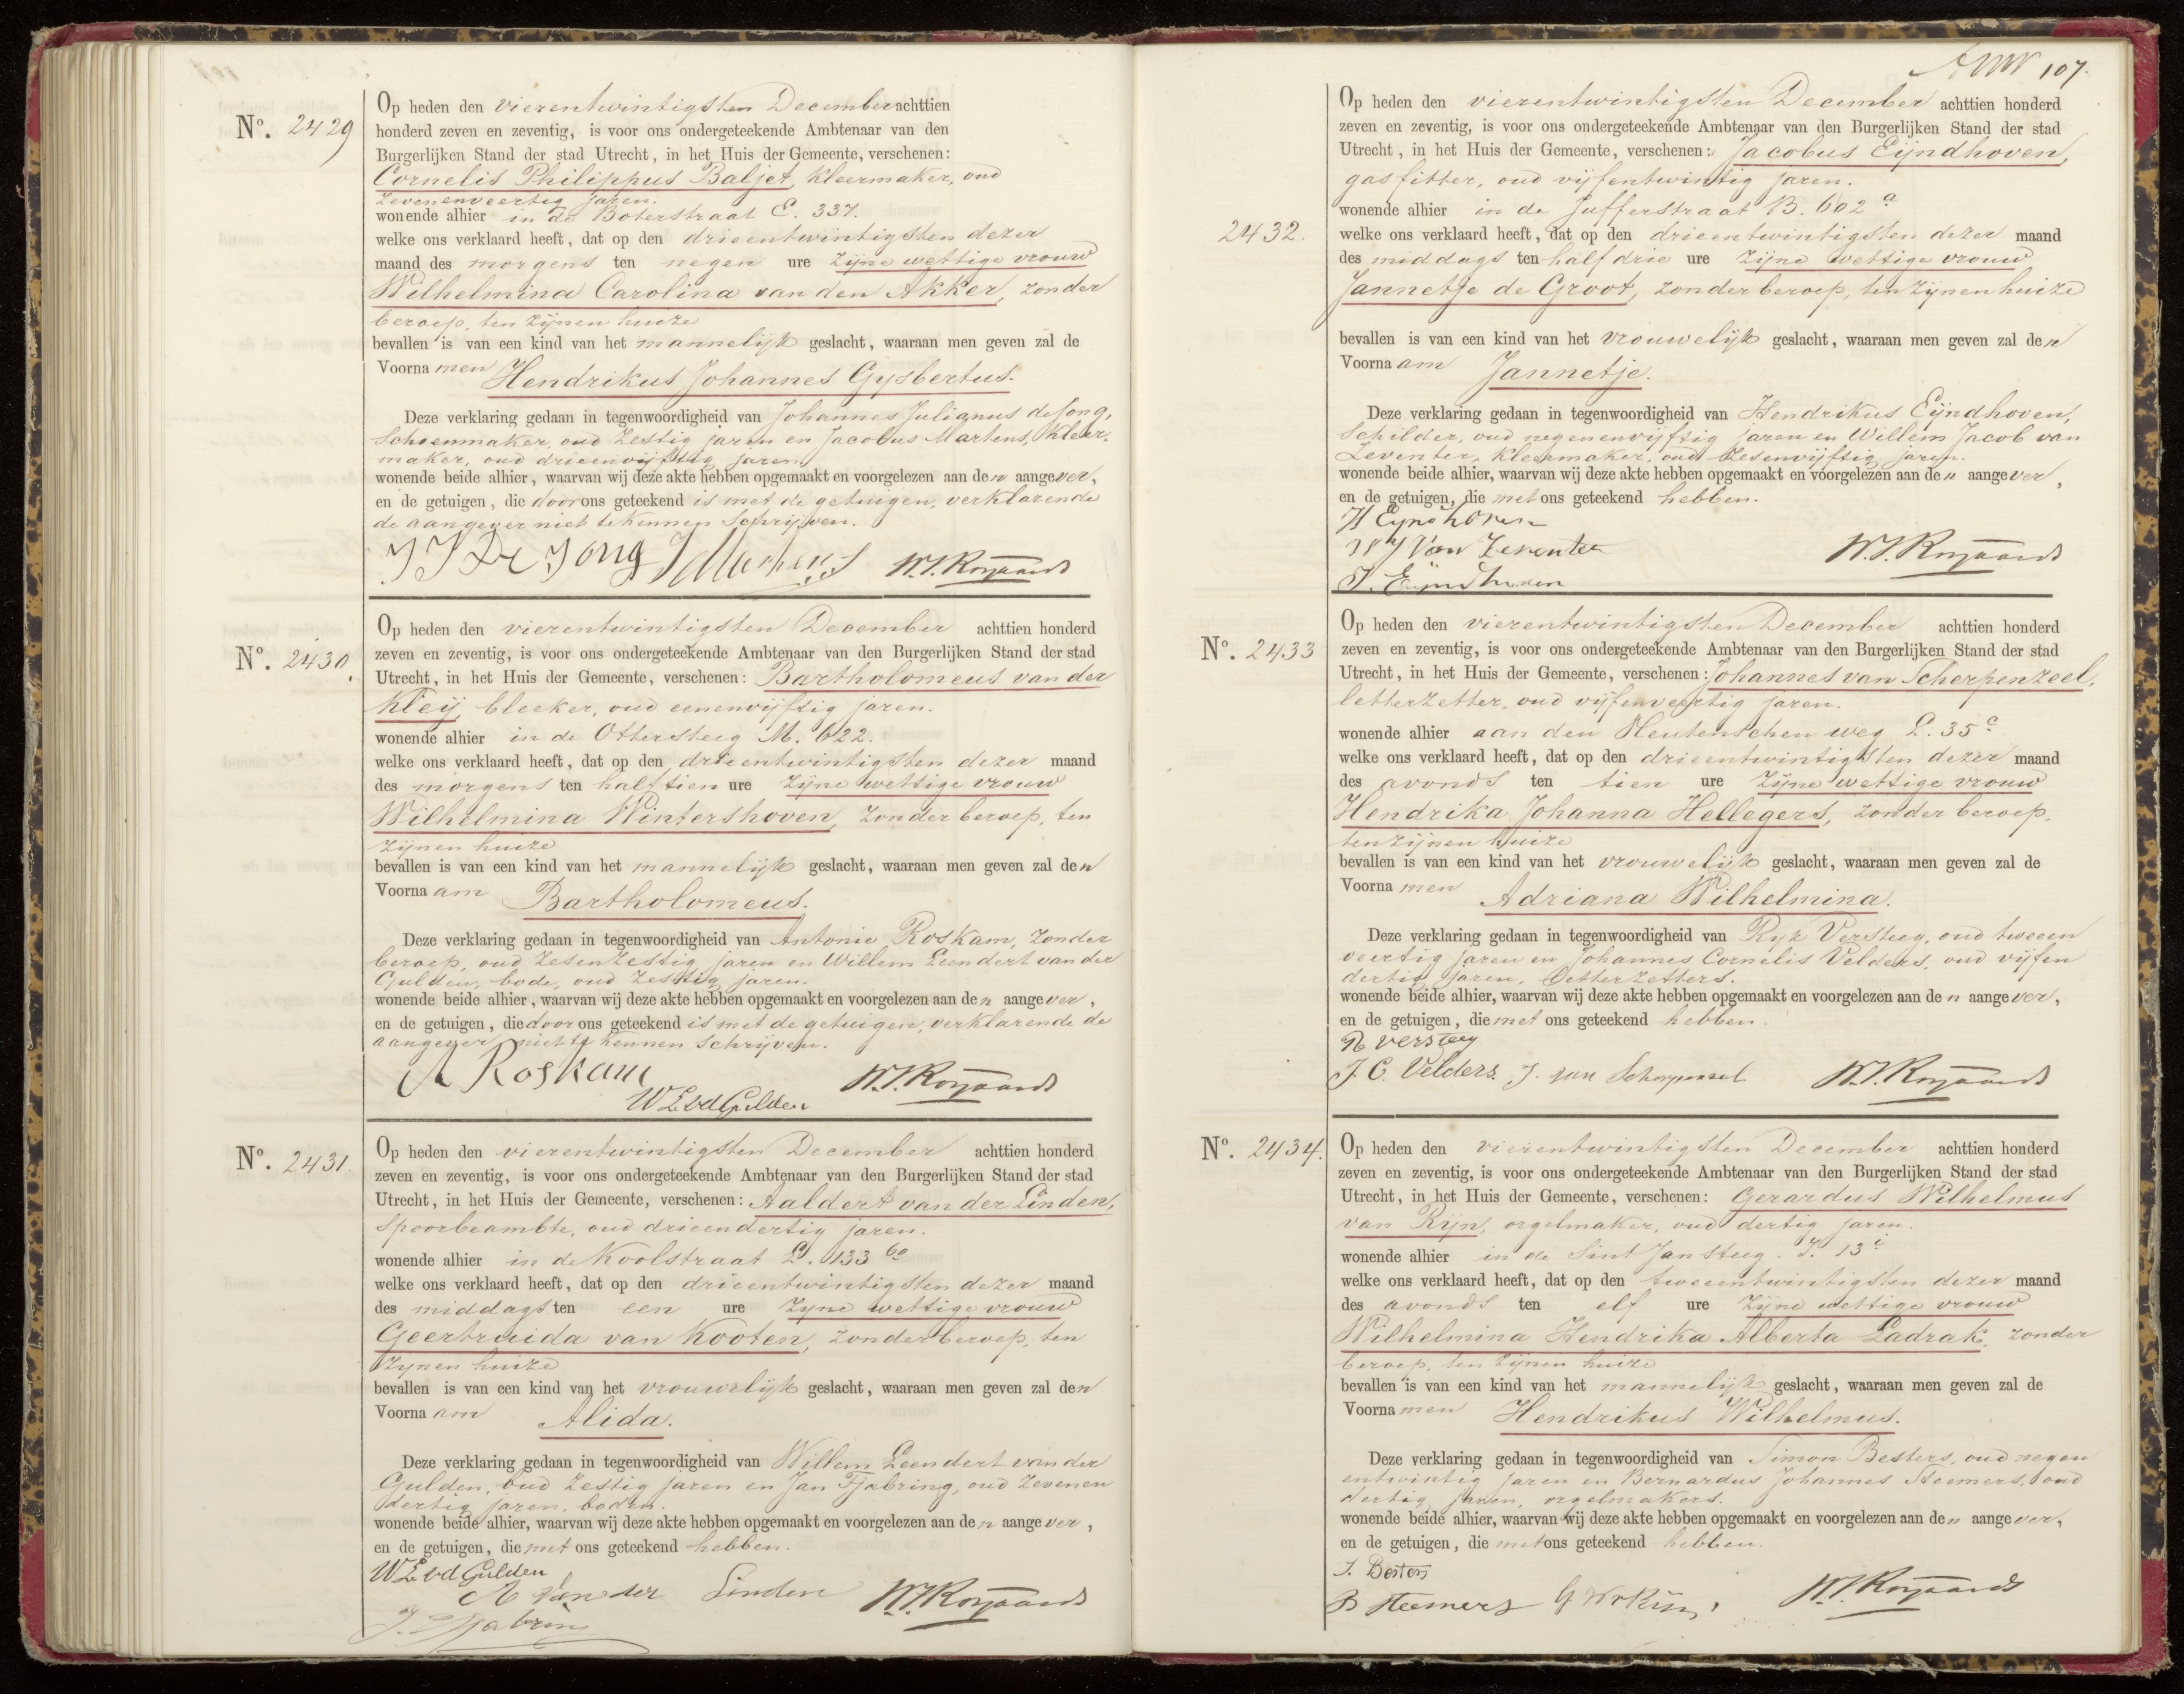 Nº. 2429
Op heden den vierentwintigsten December achttien
honderd zeven en zeventig, is voor ons ondergeteekende Ambtenaar van den
Burgerlijken Stand der stad Utrecht, in het Huis der Gemeente, verschenen:
Cornelis Philippus Baljet, kleermaker, oud
zevenenveertig jaren.
wonende alhier in de Boterstraat E. 337.
welke ons verklaard heeft, dat op den drieentwintigsten dezer
maand des morgens ten negen ure zijne wettige vrouw
Wilhelmina Carolina van den Akker, zonder
beroep, ten zijnen huize
bevallen is van een kind van het mannelijk geslacht, waaraan men geven zal de
Voornamen Hendrikus Johannes Gysbertus.
Deze verklaring gedaan in tegenwoordigheid van Johannes Julianus de Jong,
schoenmaker, oud zestig jaren en Jacobus Martens, kleer-
maker, oud drieenvijftig jaren
wonende beide alhier, waarvan wij deze akte hebben opgemaakt en voorgelezen aan den aangever,
en de getuigen, die door ons geteekend is met de getuigen, verklarende
de aangever niet te kennen schrijven.
J J De Jong J Martens W.J. Royaards
Nº. 2430.
Op heden den vierentwintigsten December achttien honderd
zeven en zeventig, is voor ons ondergeteekende Ambtenaar van den Burgerlijken Stand der stad
Utrecht, in het Huis der Gemeente, verschenen: Bartholomeus van der
Kleij, bleeker, oud eenenvijftig jaren.
wonende alhier in de Ottersteeg M. 622.
welke ons verklaard heeft, dat op den drieentwintigsten dezer maand
des morgens ten half tien ure zijne wettige vrouw
Wilhelmina Wintershoven, zonder beroep, ten
zijnen huize
bevallen is van een kind van het mannelijk geslacht, waaraan men geven zal den
Voornaam Bartholomeus.
Deze verklaring gedaan in tegenwoordigheid van Antonie Roskam, zonder
beroep, oud zesenzestig jaren en Willem Leendert van der
Gulden, bode, oud zestig jaren.
wonende beide alhier, waarvan wij deze akte hebben opgemaakt en voorgelezen aan den aangever,
en de getuigen, die door ons geteekend is met de getuigen, verklarende de
aangever niet te kennen schrijven.
A Roskam W.J. Royaards
W L vd Gulden
Nº. 2431.
Op heden den vierentwintigsten December achttien honderd
zeven en zeventig, is voor ons ondergeteekende Ambtenaar van den Burgerlijken Stand der stad
Utrecht, in het Huis der Gemeente, verschenen: Aaldert van der Linden,
spoorbeambte, oud drieendertig jaren.
wonende alhier in de Koolstraat L. 133
welke ons verklaard heeft, dat op den drieentwintigsten dezer maand
des middags ten een ure zyne wettige vrouw
Geertruida van Kooten, zonder beroep, ten
zynen huize
bevallen is van een kind van het vrouwelijk geslacht, waaraan men geven zal den
Voornaam Alida.
Deze verklaring gedaan in tegenwoordigheid van Willem Leendert van der
Gulden, oud zestig jaren en Jan Tjabring, oud zevenen
dertig jaren, boden.
wonende beide alhier, waarvan wij deze akte hebben opgemaakt en voorgelezen aan den aangever,
en de getuigen, die met ons geteekend hebben.
W L vd Gulden
A van der Linden W.J. Royaards
J. Tjabring
107.
2432.
Op heden den vierentwintigsten December achttien honderd
zeven en zeventig, is voor ons ondergeteekende Ambtenaar van den Burgerlijken Stand der stad
Utrecht, in het Huis der Gemeente, verschenen: Jacobus Eijndhoven,
gasfitter, oud vijfentwintig jaren.
wonende alhier in de Jufferstraat B. 602 a
welke ons verklaard heeft, dat op den drieentwintigsten dezer maand
des middags ten half drie ure zijne wettige vrouw
Jannetje de Groot, zonder beroep, ten zijnen huize
bevallen is van een kind van het vrouwelijk geslacht, waaraan men geven zal den
Voornaam Jannetje.
Deze verklaring gedaan in tegenwoordigheid van Hendrikus Eijndhoven,
schilder, oud negenenvijftig jaren en Willem Jacob van
Zeventer, kleermaker, oud zesenvijftig jaren.
wonende beide alhier, waarvan wij deze akte hebben opgemaakt en voorgelezen aan den aangever,
en de getuigen, die met ons geteekend hebben.
H Eyndhoven
W J Van Zeventer W.J. Royaards
J. Eijndhoven
Nº. 2433
Op heden den vierentwintigsten December achttien honderd
zeven en zeventig, is voor ons ondergeteekende Ambtenaar van den Burgerlijken Stand der stad
Utrecht, in het Huis der Gemeente, verschenen: Johannes van Scherpenzeel,
letterzetter, oud vijfenveertig jaren.
wonende alhier aan den Heutenschen weg L. 35 c
welke ons verklaard heeft, dat op den drieentwintigsten dezer maand
des avonds ten tien ure zijne wettige vrouw
Hendrika Johanna Hellegers, zonder beroep,
ten zijnen huize
bevallen is van een kind van het vrouwelijk geslacht, waaraan men geven zal de
Voornamen Adriana Wilhelmina.
Deze verklaring gedaan in tegenwoordigheid van Ryk Versteeg, oud tweeen
veertig jaren en Johannes Cornelis Velders, oud vijfen
dertig jaren, letterzetters.
wonende beide alhier, waarvan wij deze akte hebben opgemaakt en voorgelezen aan den aangever,
en de getuigen, die met ons geteekend hebben.
R versteeg
J. C. Velders. J. van Scherpenzeel W.J. Royaards
Nº. 2434.
Op heden den vierentwintigsten December achttien honderd
zeven en zeventig, is voor ons ondergeteekende Ambtenaar van den Burgerlijken Stand der stad
Utrecht, in het Huis der Gemeente, verschenen: Gerardus Wilhelmus
van Rijn, orgelmaker, oud dertig jaren.
wonende alhier in de Sint Jansteeg. I. 13 i
welke ons verklaard heeft, dat op den tweeentwintigsten dezer maand
des avonds ten elf ure zijne wettige vrouw
Wilhelmina Hendrika Alberta Ladrak, zonder
beroep, ten zijnen huize
bevallen is van een kind van het mannelijk geslacht, waaraan men geven zal de
Voornamen Hendrikus Wilhelmus.
Deze verklaring gedaan in tegenwoordigheid van Simon Besters, oud negen
entwintig jaren en Bernardus Johannes Steemers, oud
dertig jaren, orgelmakers.
wonende beide alhier, waarvan wij deze akte hebben opgemaakt en voorgelezen aan den aangever,
en de getuigen, die met ons geteekend hebben.
S. Besters
B Steemers G W v Rijn W.J. Royaards